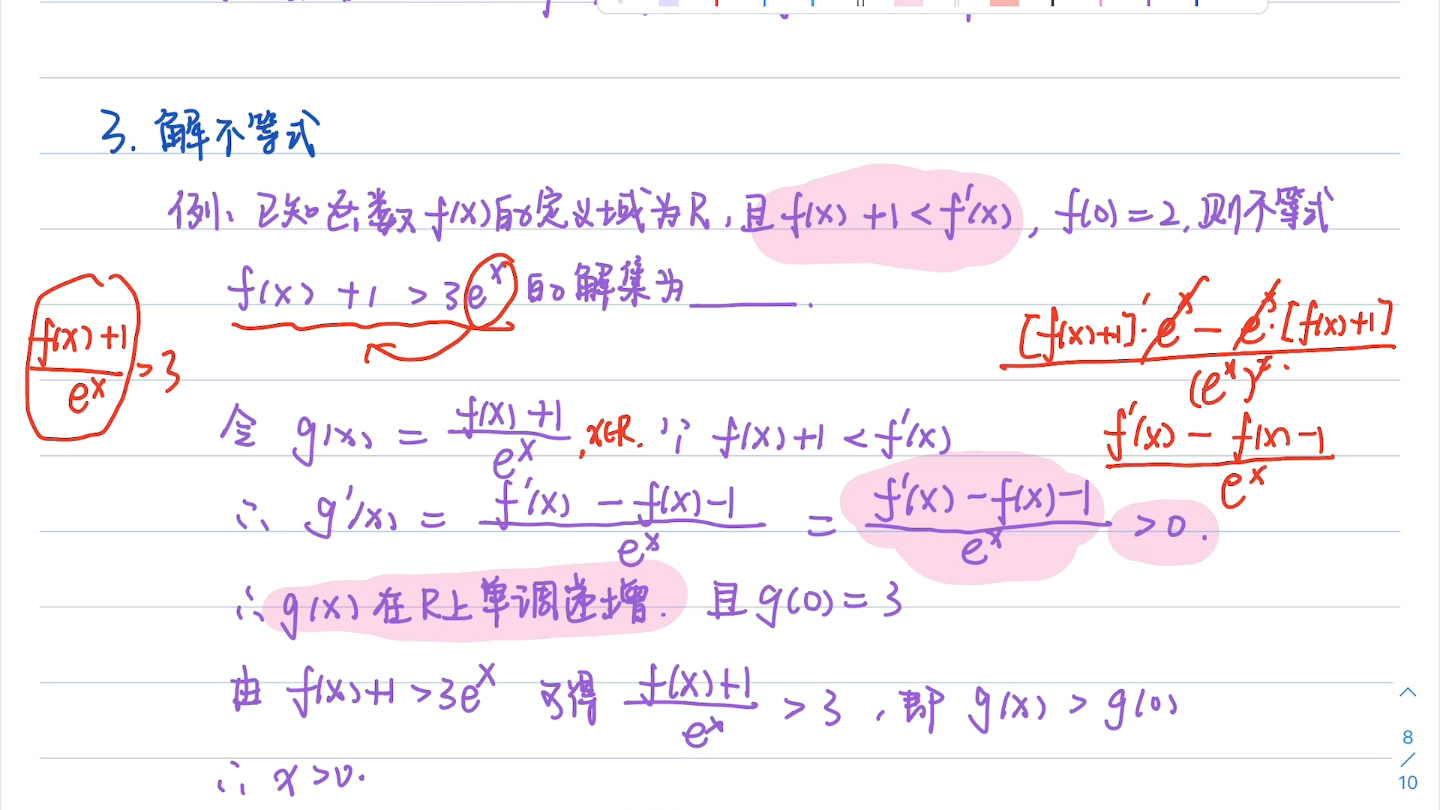 3. 解不等式
例、已知函数f(x)的定义域为R,且f(x)+1<f'(x), f(0)=2,则不等式
f(x)+1>3e^x的解集为______.
(f(x)+1)/e^x>3
([f(x)+1]'·e^x-e^x·[f(x)+1])/(e^x)^2
令 g(x)=(f(x)+1)/e^x, x∈R. ∵ f(x)+1<f'(x)
(f'(x)-f(x)-1)/e^x
∴ g'(x)=(f'(x)-f(x)-1)/e^x=(f'(x)-f(x)-1)/e^x>0.
∴ g(x)在R上单调递增. 且g(0)=3
由 f(x)+1>3e^x 可得 (f(x)+1)/e^x>3, 即 g(x)>g(0)
∴ x>0.
8
/
10